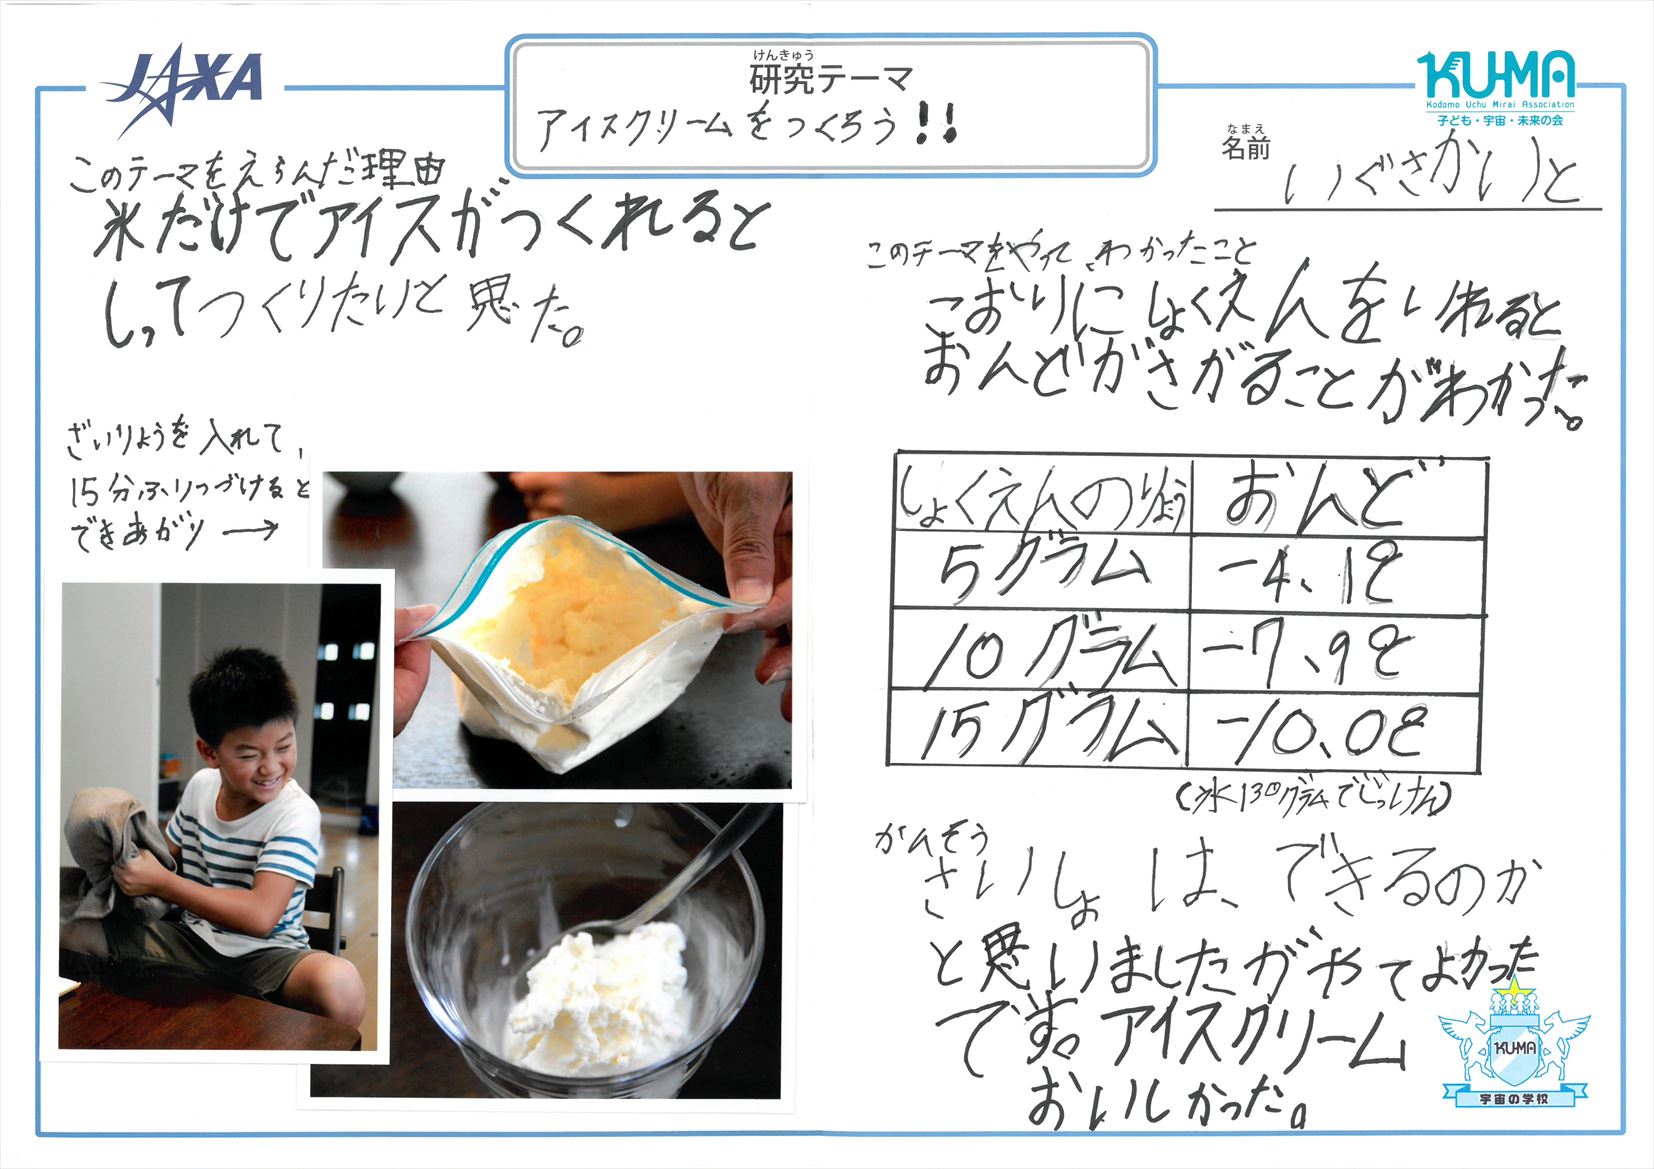 JAXA
けんきゅう
研究テーマ
アイスクリームをつくろう!!
KU-MA
Kodomo Uchu Mirai Association
子ども・宇宙・未来の会
なまえ
名前
いぐさかいと
このテーマをえらんだ理由
氷だけでアイスがつくれると
しってつくりたいと思た。
ざいりょうを入れて、
15分ふりつづけると
できあがり →
このテーマをやって、わかったこと
こおりにしょくえんをいれると
おんどがさがることがわかった。
しょくえんのりょう おんど
5グラム -4.1℃
10グラム -7.9℃
15グラム -10.0℃
(氷130グラムでじっけん)
かんそう
さいしょは、できるのか
と思いましたがやてよかった
です。アイスクリーム
おいしかった。
KU-MA
宇宙の学校